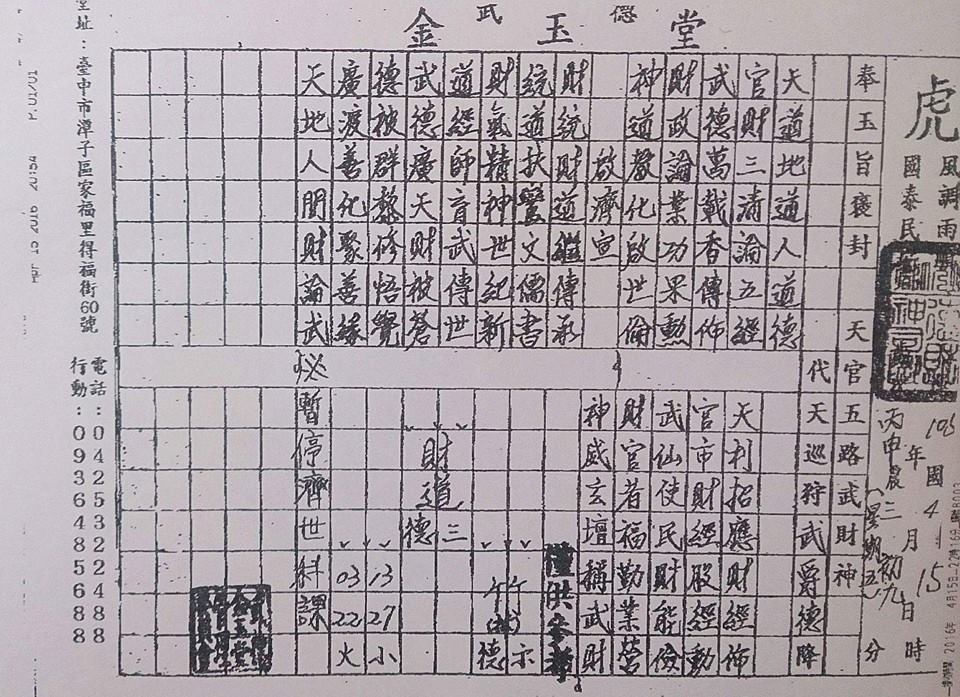 武德
金玉堂
虎
風調雨
國泰民
年 4月15日時
丙申 農三 初九 分
(星期五)
奉玉旨褒封 天官五路武財神
代天巡狩武爵德降
天道地道人道德
官財三清論五經
武德萬載香傳佈
財政論業功果勳
神道教化啟世倫
啟濟宣
財統財道繼傳承
統道扶鸞文儒書
財氣精神世紀新
道經師育武傳世
武德廣天財被蒼
德被群黎修悟覺
廣渡善化聚善緣
天地人間財論武
天利招應財經佈
官市財經股經動
武仙使民財能儉
財官者福勤業營
神威玄壇稱武財
僅供參考
財道
三
德
13 27 小
03 22 火
秘
暫停濟世科課
堂址：臺中市潭子區家福里得福街60號
電話：
行動：